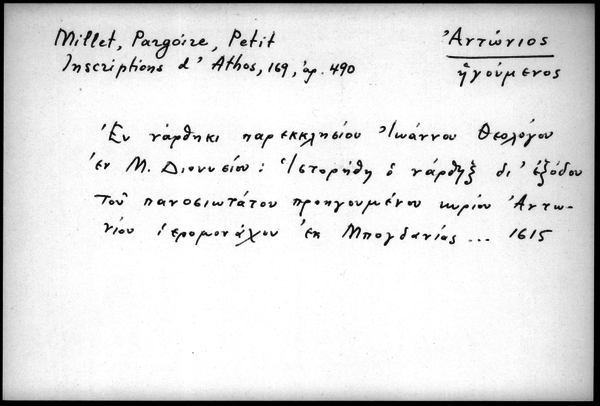 Millet, Pargoire, Petit
Inscriptions d'Athos, 169, ἀρ. 490
Ἀντώνιος
ἡγούμενος
Ἐν νάρθηκι παρεκκλησίου Ἰωάννου Θεολόγου
ἐν Μ. Διονυσίου: Ἱστορήθη ὁ νάρθηξ δι' ἐξόδου
τοῦ πανοσιωτάτου προηγουμένου κυρίου Ἀντω-
νίου ἱερομονάχου ἐκ Μπογδανίας ... 1615